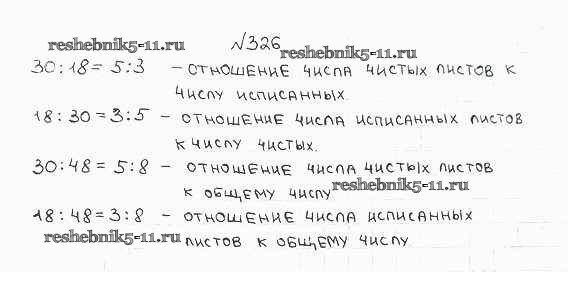 reshebnik5-11.ru
№326
reshebnik5-11.ru
30:18= 5:3 – отношение числа чистых листов к
числу исписанных.
18:30 = 3:5 – отношение числа исписанных листов
к числу чистых.
30:48 = 5:8 – отношение числа чистых листов
к общему числу
reshebnik5-11.ru
18:48=3:8 – отношение числа исписанных
reshebnik5-11.ru
листов к общему числу